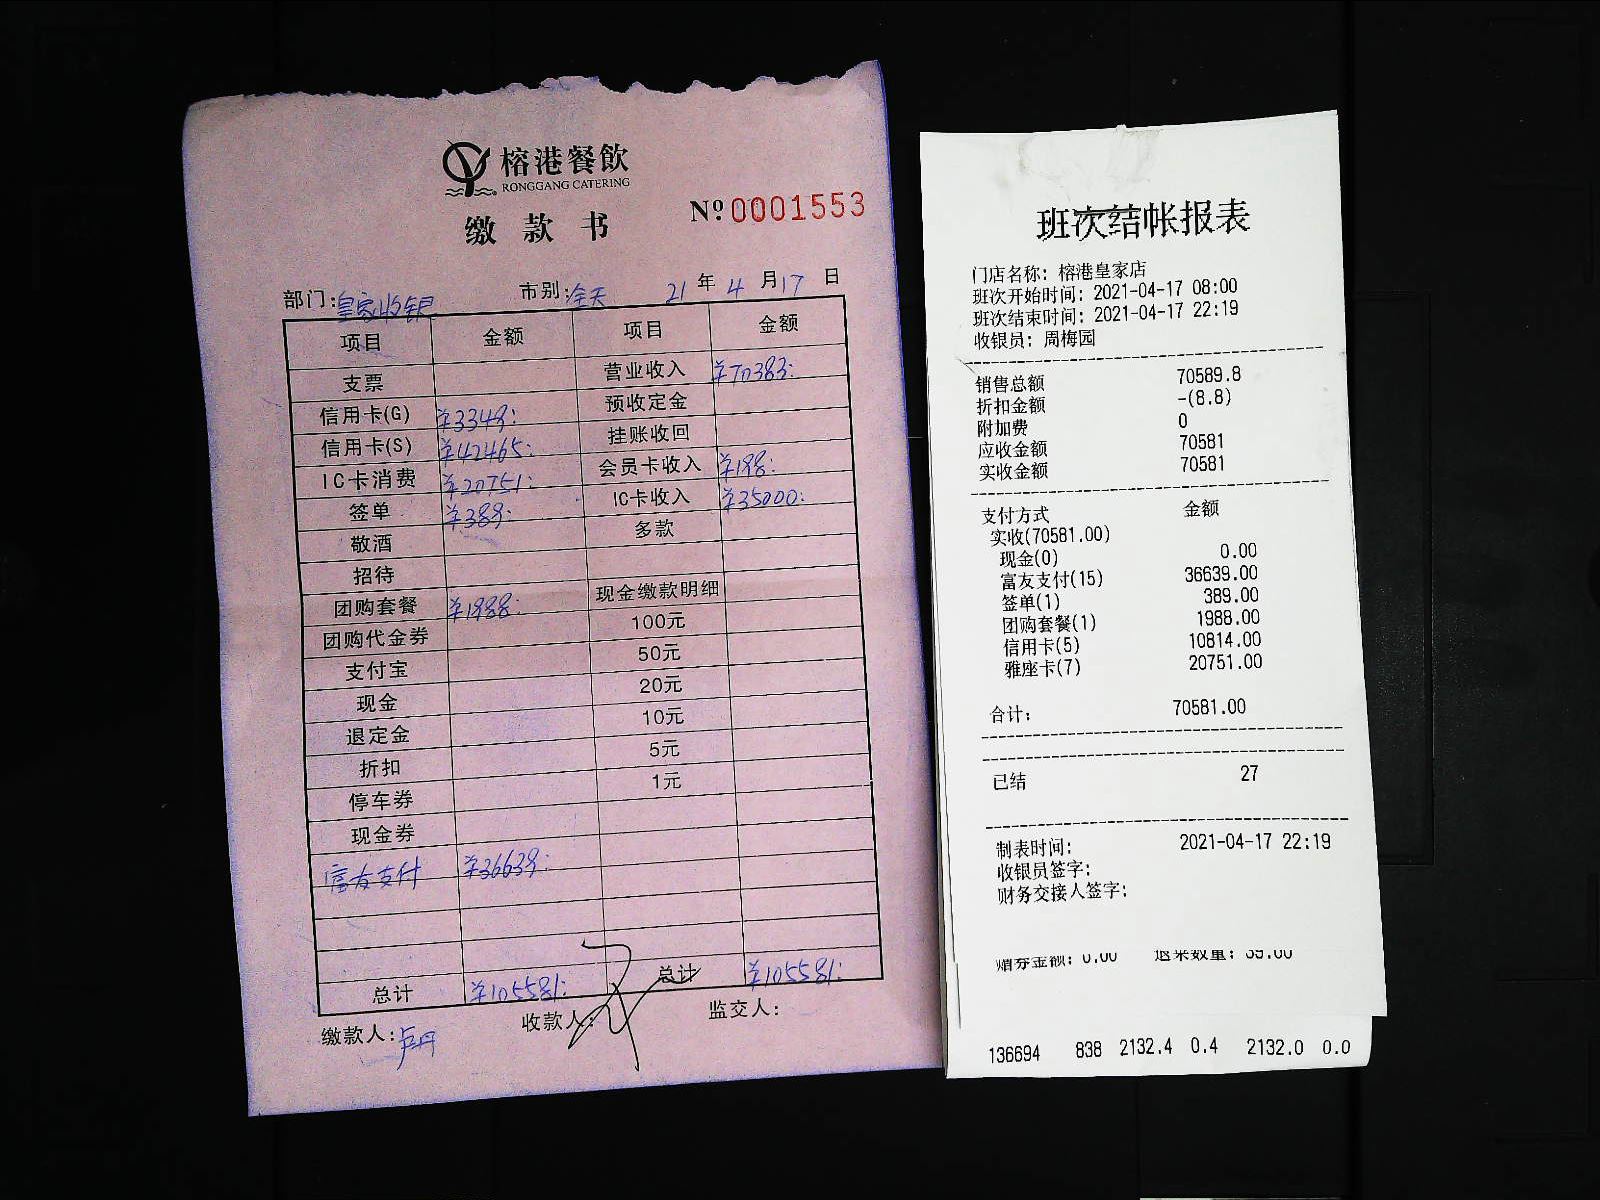 榕港餐飲
RONGGANG CATERING
缴款书
Nº 0001553
部门:皇家收银 市别:全天 21年4月17日
项目 金额 项目 金额
支票 营业收入 ¥70383:
信用卡(G) ¥3349: 预收定金
信用卡(S) ¥42465: 挂账收回
IC卡消费 ¥20751: 会员卡收入 ¥198:
签单 ¥389: IC卡收入 ¥35000:
敬酒 多款
招待
团购套餐 ¥1988: 现金缴款明细
团购代金券 100元
支付宝 50元
现金 20元
退定金 10元
折扣 5元
停车券 1元
现金券
富友支付 ¥36639:
总计 ¥105581: 总计 ¥105581:
缴款人:卢丹 收款人: 监交人:
班次结帐报表
门店名称: 榕港皇家店
班次开始时间: 2021-04-17 08:00
班次结束时间: 2021-04-17 22:19
收银员: 周梅园
销售总额 70589.8
折扣金额 -(8.8)
附加费 0
应收金额 70581
实收金额 70581
支付方式 金额
实收(70581.00)
现金(0) 0.00
富友支付(15) 36639.00
签单(1) 389.00
团购套餐(1) 1988.00
信用卡(5) 10814.00
雅座卡(7) 20751.00
合计: 70581.00
已结 27
制表时间: 2021-04-17 22:19
收银员签字:
财务交接人签字:
赠券金额: 0.00 退菜数量: 39.00
136694 838 2132.4 0.4 2132.0 0.0